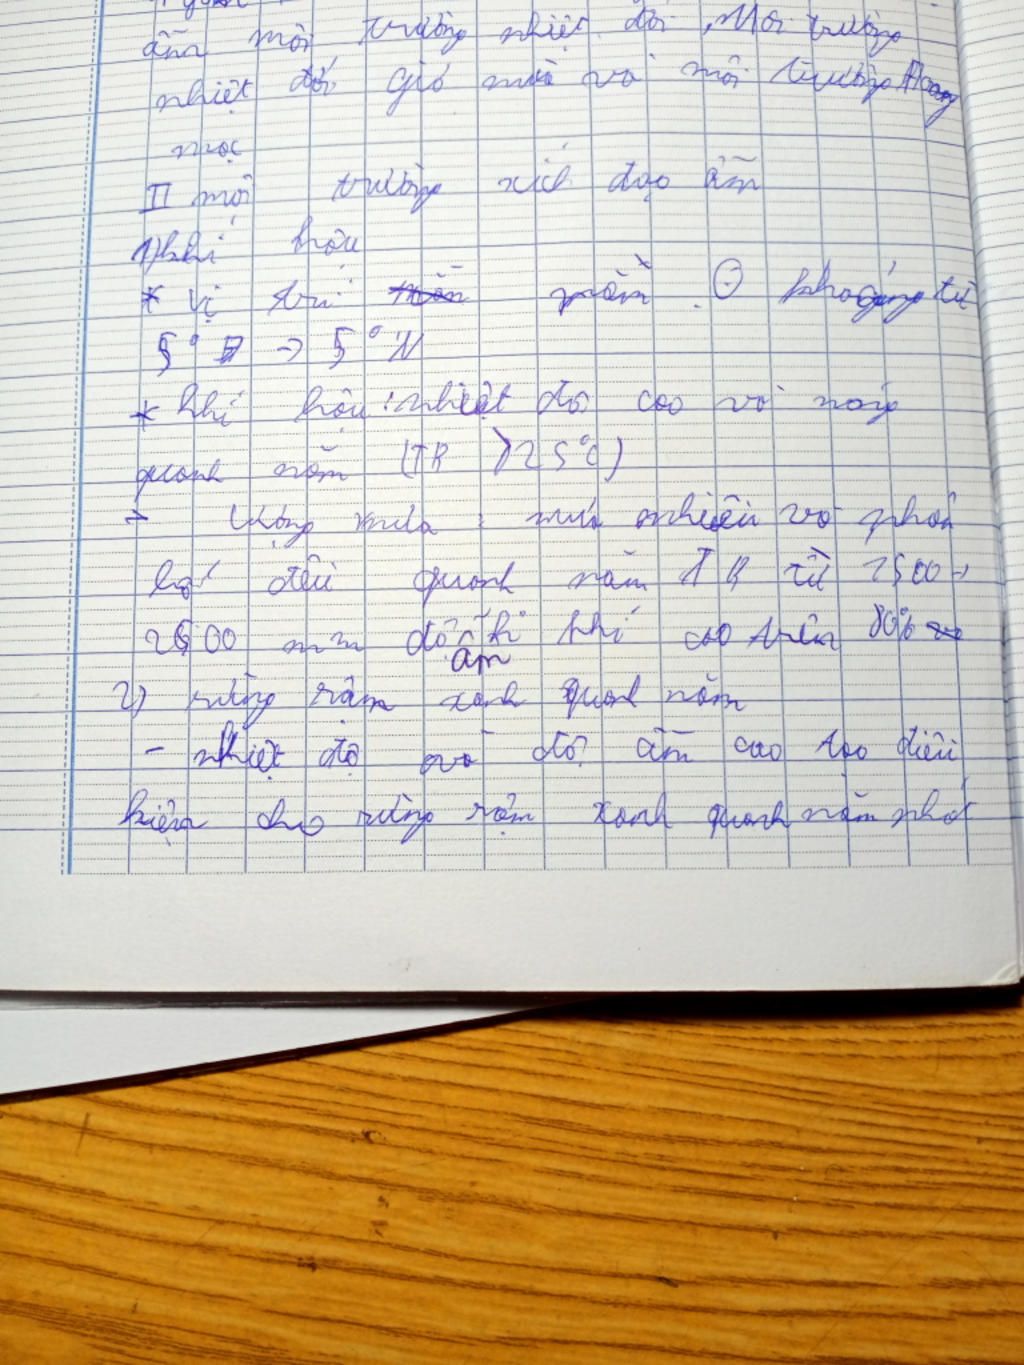 ẩm môi trường nhiệt đới, Môi trường
nhiệt đới gió mùa và môi trường Hoang
mạc
II môi trường xích đạo ẩm
1) khí hậu
* vị trí nằm khoảng từ
5° B -> 5° N
* khí hậu: nhiệt độ cao và nóng
quanh năm (TB >25°C)
lượng mưa: mưa nhiều và phân
bố đều quanh năm TB từ 1500->
2500 mm độ ẩm k khí cao trên 80%
2) rừng rậm xanh quanh năm
- nhiệt độ và độ ẩm cao tạo điều
kiện cho rừng rậm xanh quanh năm phát